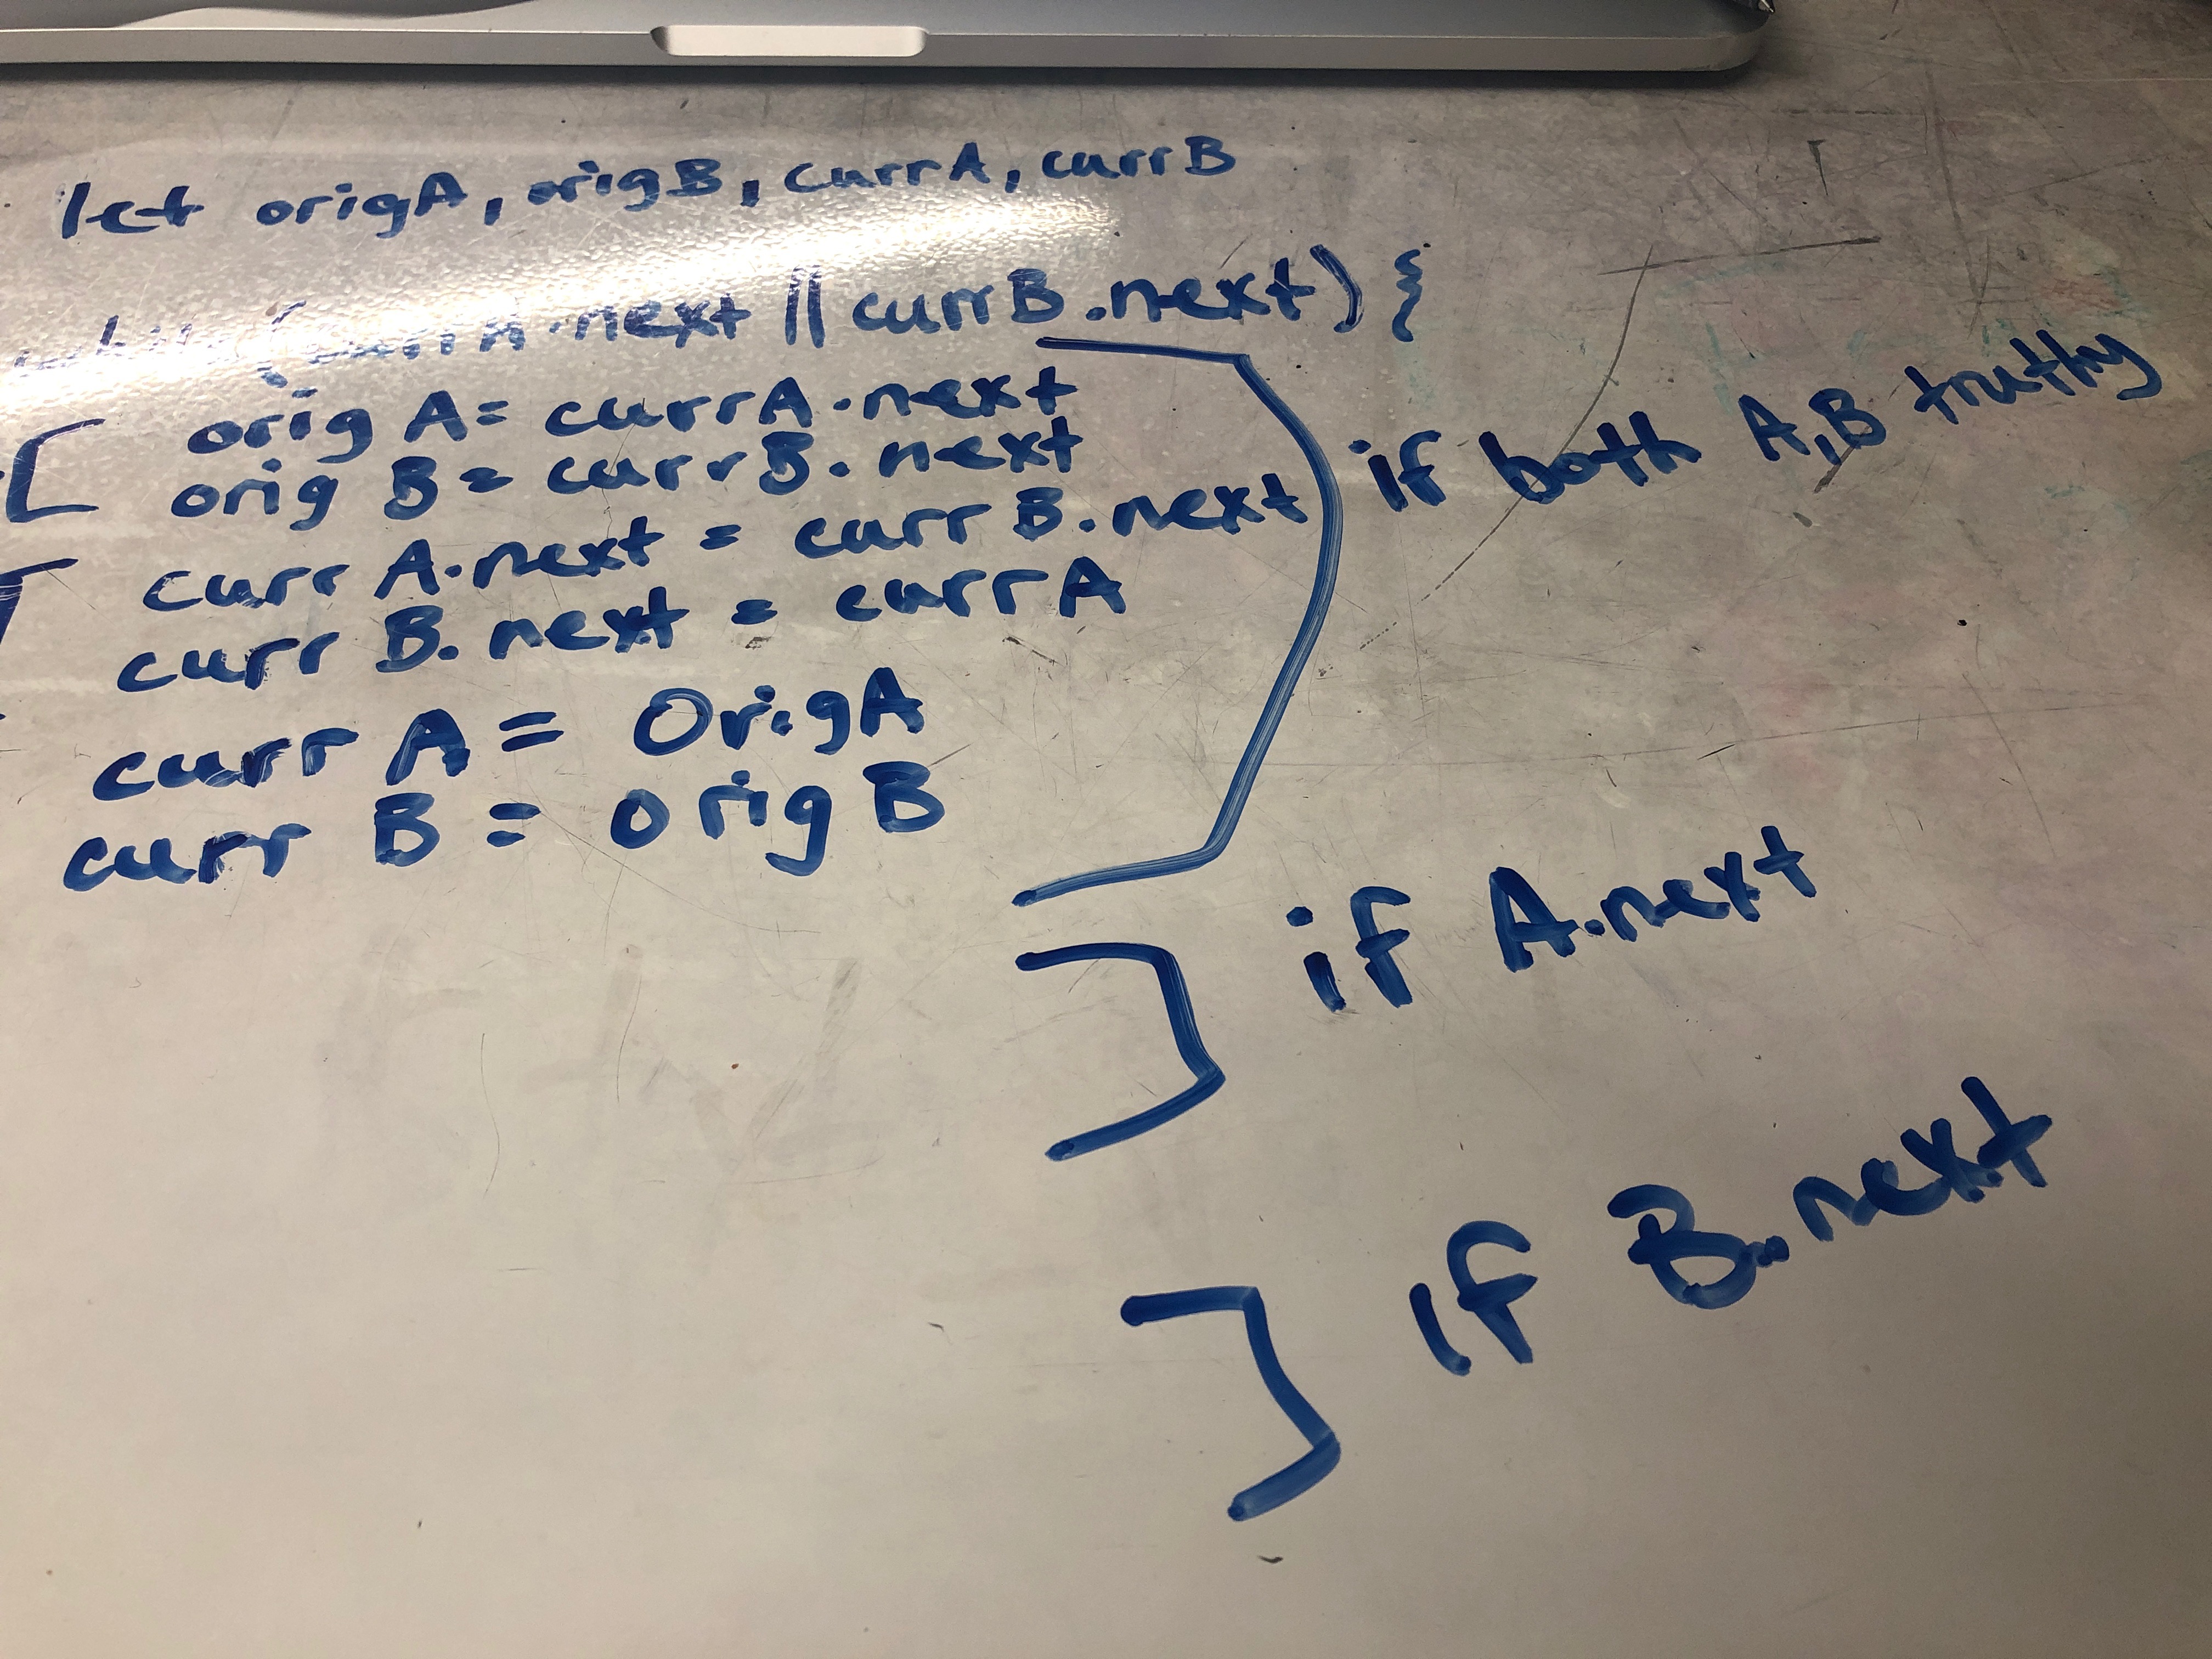 let origA, origB, currA, currB
while (currA.next || currB.next) {
orig A= currA.next
orig B= currB.next
curr A.next = curr B.next
curr B.next = currA
curr A = OrigA
curr B = orig B
if both A,B truthy
if A.next
if B.next